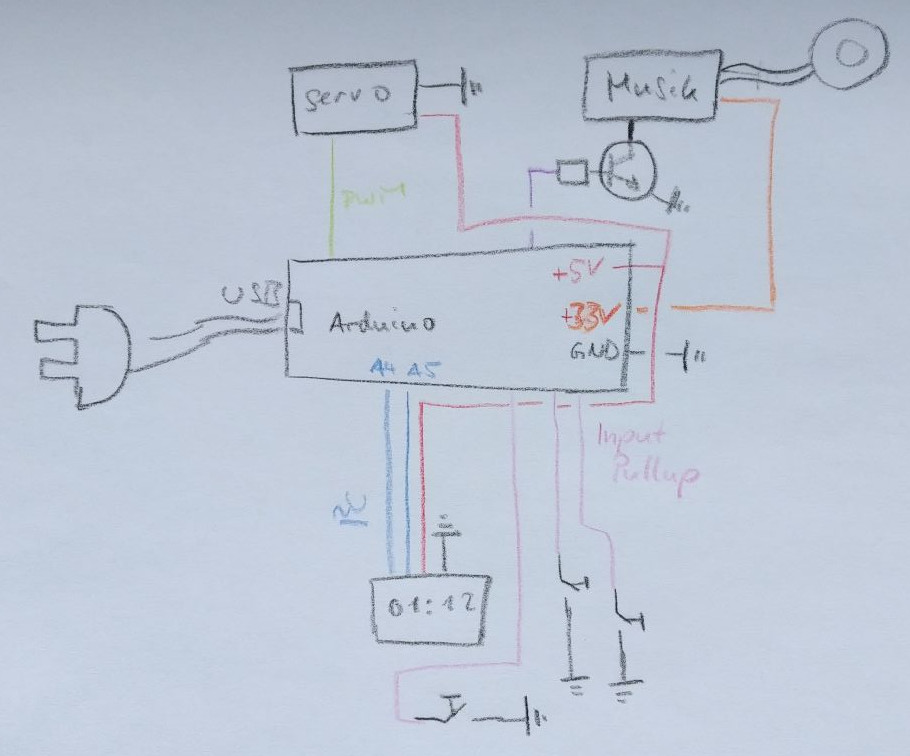 Servo
Musik
PWM
USB
+5V
Arduino
+33V
GND
A4 A5
Input
Pullup
I²C
01:12